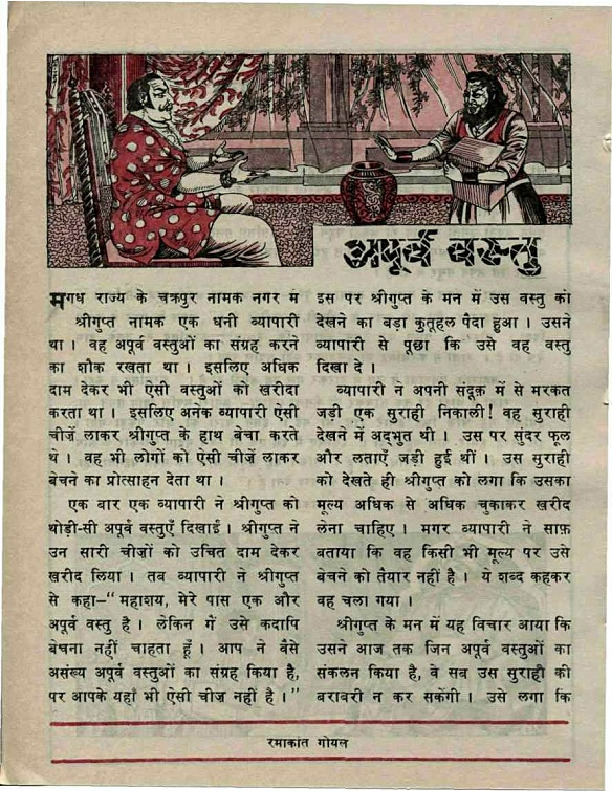 अपूर्व वस्तु
मगध राज्य के चक्रपुर नामक नगर में
श्रीगुप्त नामक एक धनी व्यापारी
था। वह अपूर्व वस्तुओं का संग्रह करने
का शौक रखता था। इसलिए अधिक
दाम देकर भी ऐसी वस्तुओं को खरीदा
करता था। इसलिए अनेक व्यापारी ऐसी
चीज़ें लाकर श्रीगुप्त के हाथ बेचा करते
थे। वह भी लोगों को ऐसी चीजें लाकर
बेचने का प्रोत्साहन देता था।
एक बार एक व्यापारी ने श्रीगुप्त को
थोड़ी-सी अपूर्व वस्तुएँ दिखाईं। श्रीगुप्त ने
उन सारी चीज़ों को उचित दाम देकर
ख़रीद लिया। तब व्यापारी ने श्रीगुप्त
से कहा–“महाशय, मेरे पास एक और
अपूर्व वस्तु है। लेकिन में उसे कदापि
बेचना नहीं चाहता हूँ। आप ने वैसे
असंख्य अपूर्व वस्तुओं का संग्रह किया है,
पर आपके यहाँ भी ऐसी चीज़ नहीं है।”
इस पर श्रीगुप्त के मन में उस वस्तु को
देखने का बड़ा कुतूहल पैदा हुआ। उसने
व्यापारी से पूछा कि उसे वह वस्तु
दिखा दे।
व्यापारी ने अपनी संदूक़ में से मरकत
जड़ी एक सुराही निकाली! वह सुराही
देखने में अद्भुत थी। उस पर सुंदर फूल
और लताएँ जड़ी हुई थीं। उस सुराही
को देखते ही श्रीगुप्त को लगा कि उसका
मूल्य अधिक से अधिक चुकाकर खरीद
लेना चाहिए। मगर व्यापारी ने साफ़
बताया कि वह किसी भी मूल्य पर उसे
बेचने को तैयार नहीं है। ये शब्द कहकर
वह चला गया।
श्रीगुप्त के मन में यह विचार आया कि
उसने आज तक जिन अपूर्व वस्तुओं का
संकलन किया है, वे सब उस सुराही की
बराबरी न कर सकेंगी। उसे लगा कि
रमाकांत गोयल